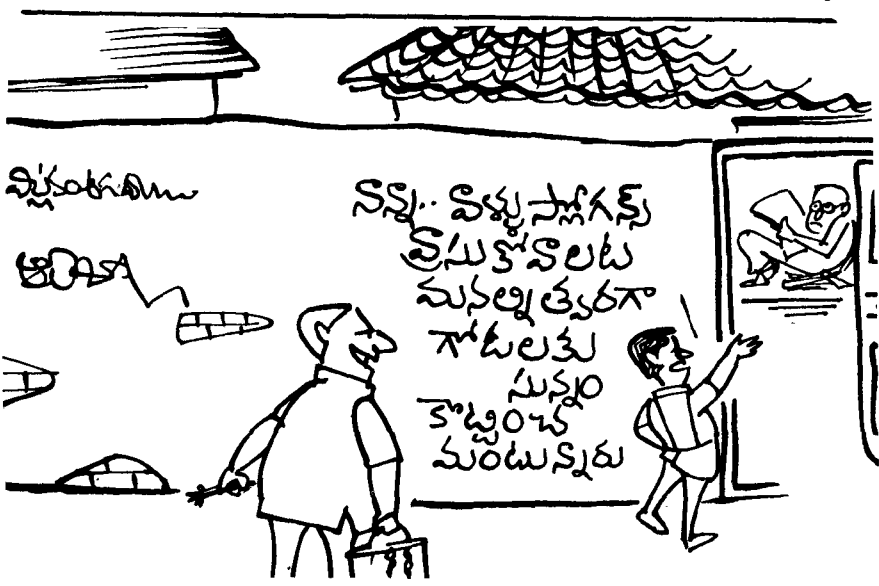 నాన్నా.. వాళ్ళు స్లోగన్స్
వ్రాసుకోవాలట
మనల్ని త్వరగా
గోడలకు
సున్నం
కొట్టించ
మంటున్నారు